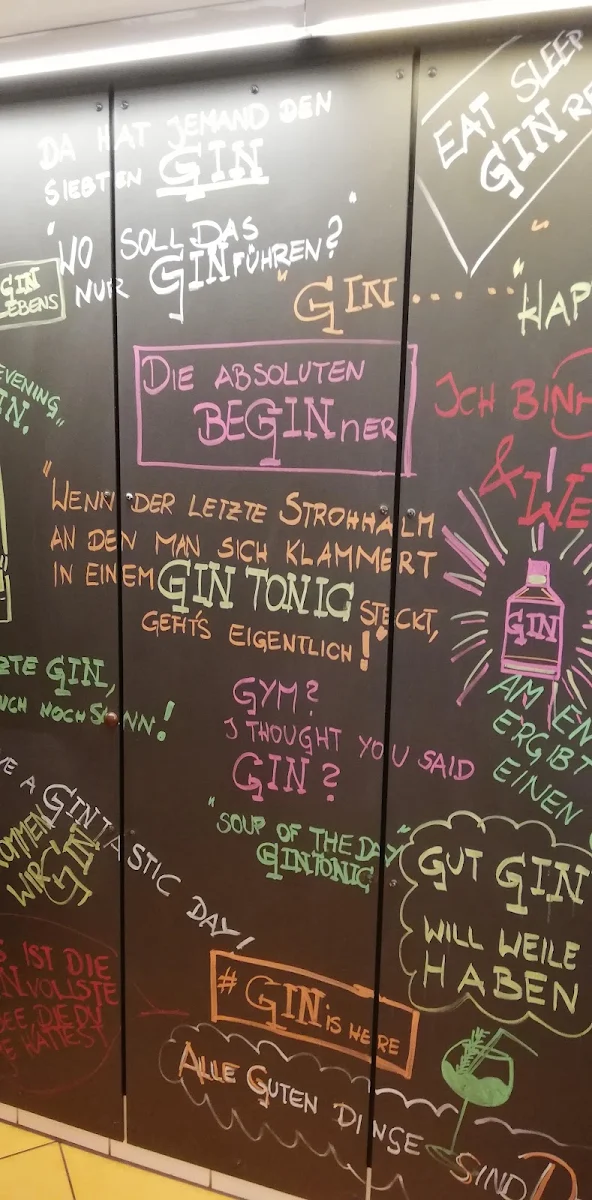 DA HAT JEMAND DEN
SIEBTEN GIN
"WO SOLL DAS
NUR GINFÜHREN?"
EAT SLEEP
GIN RE
GIN
LEBENS
"GIN.... "HAP
EVENING,"
IN.
DIE ABSOLUTEN
BEGINNER
ICH BIN
& WE
"WENN DER LETZTE STROHHALM
AN DEN MAN SICH KLAMMERT
IN EINEM GIN TONIC STECKT,
GEHT'S EIGENTLICH!"
GIN
ZTE GIN,
UCH NOCH SINN!
GYM?
I THOUGHT YOU SAID
GIN?
AM EN
ERGIBT
EINEN
VE A GINTASTIC DAY!
KOMMEN
WIR GIN
"SOUP OF THE DAY"
GINTONIC
GUT GIN
WILL WEILE
HABEN
S IST DIE
NVOLLSTE
DEE, DIE DU
E HATTEST
# GIN IS HERE
ALLE GUTEN DINGE SIND D